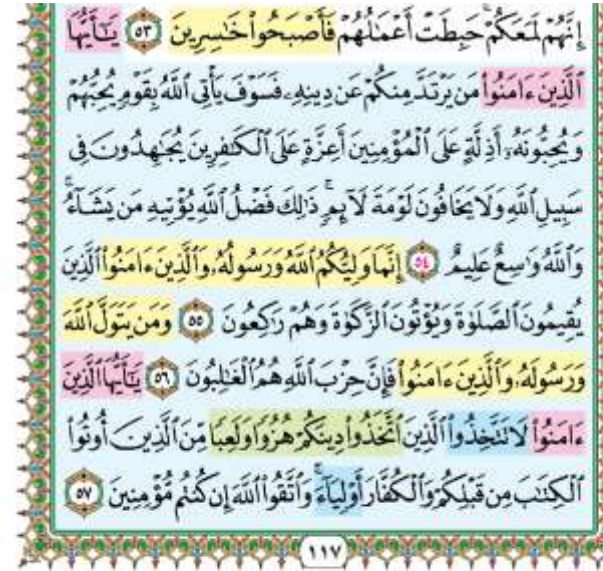 إِنَّهُمْ لَمَعَكُمْ ۚ حَبِطَتْ أَعْمَٰلُهُمْ فَأَصْبَحُوا۟ خَٰسِرِينَ ٥٣ يَٰٓأَيُّهَا
ٱلَّذِينَ ءَامَنُوا۟ مَن يَرْتَدَّ مِنكُمْ عَن دِينِهِۦ فَسَوْفَ يَأْتِى ٱللَّهُ بِقَوْمٍ يُحِبُّهُمْ
وَيُحِبُّونَهُۥٓ أَذِلَّةٍ عَلَى ٱلْمُؤْمِنِينَ أَعِزَّةٍ عَلَى ٱلْكَٰفِرِينَ يُجَٰهِدُونَ فِى
سَبِيلِ ٱللَّهِ وَلَا يَخَافُونَ لَوْمَةَ لَآئِمٍ ۚ ذَٰلِكَ فَضْلُ ٱللَّهِ يُؤْتِيهِ مَن يَشَآءُ ۚ
وَٱللَّهُ وَٰسِعٌ عَلِيمٌ ٥٤ إِنَّمَا وَلِيُّكُمُ ٱللَّهُ وَرَسُولُهُۥ وَٱلَّذِينَ ءَامَنُوا۟ ٱلَّذِينَ
يُقِيمُونَ ٱلصَّلَوٰةَ وَيُؤْتُونَ ٱلزَّكَوٰةَ وَهُمْ رَٰكِعُونَ ٥٥ وَمَن يَتَوَلَّ ٱللَّهَ
وَرَسُولَهُۥ وَٱلَّذِينَ ءَامَنُوا۟ فَإِنَّ حِزْبَ ٱللَّهِ هُمُ ٱلْغَٰلِبُونَ ٥٦ يَٰٓأَيُّهَا ٱلَّذِينَ
ءَامَنُوا۟ لَا تَتَّخِذُوا۟ ٱلَّذِينَ ٱتَّخَذُوا۟ دِينَكُمْ هُزُوًا وَلَعِبًا مِّنَ ٱلَّذِينَ أُوتُوا۟
ٱلْكِتَٰبَ مِن قَبْلِكُمْ وَٱلْكُفَّارَ أَوْلِيَآءَ ۚ وَٱتَّقُوا۟ ٱللَّهَ إِن كُنتُم مُّؤْمِنِينَ ٥٧
١١٧